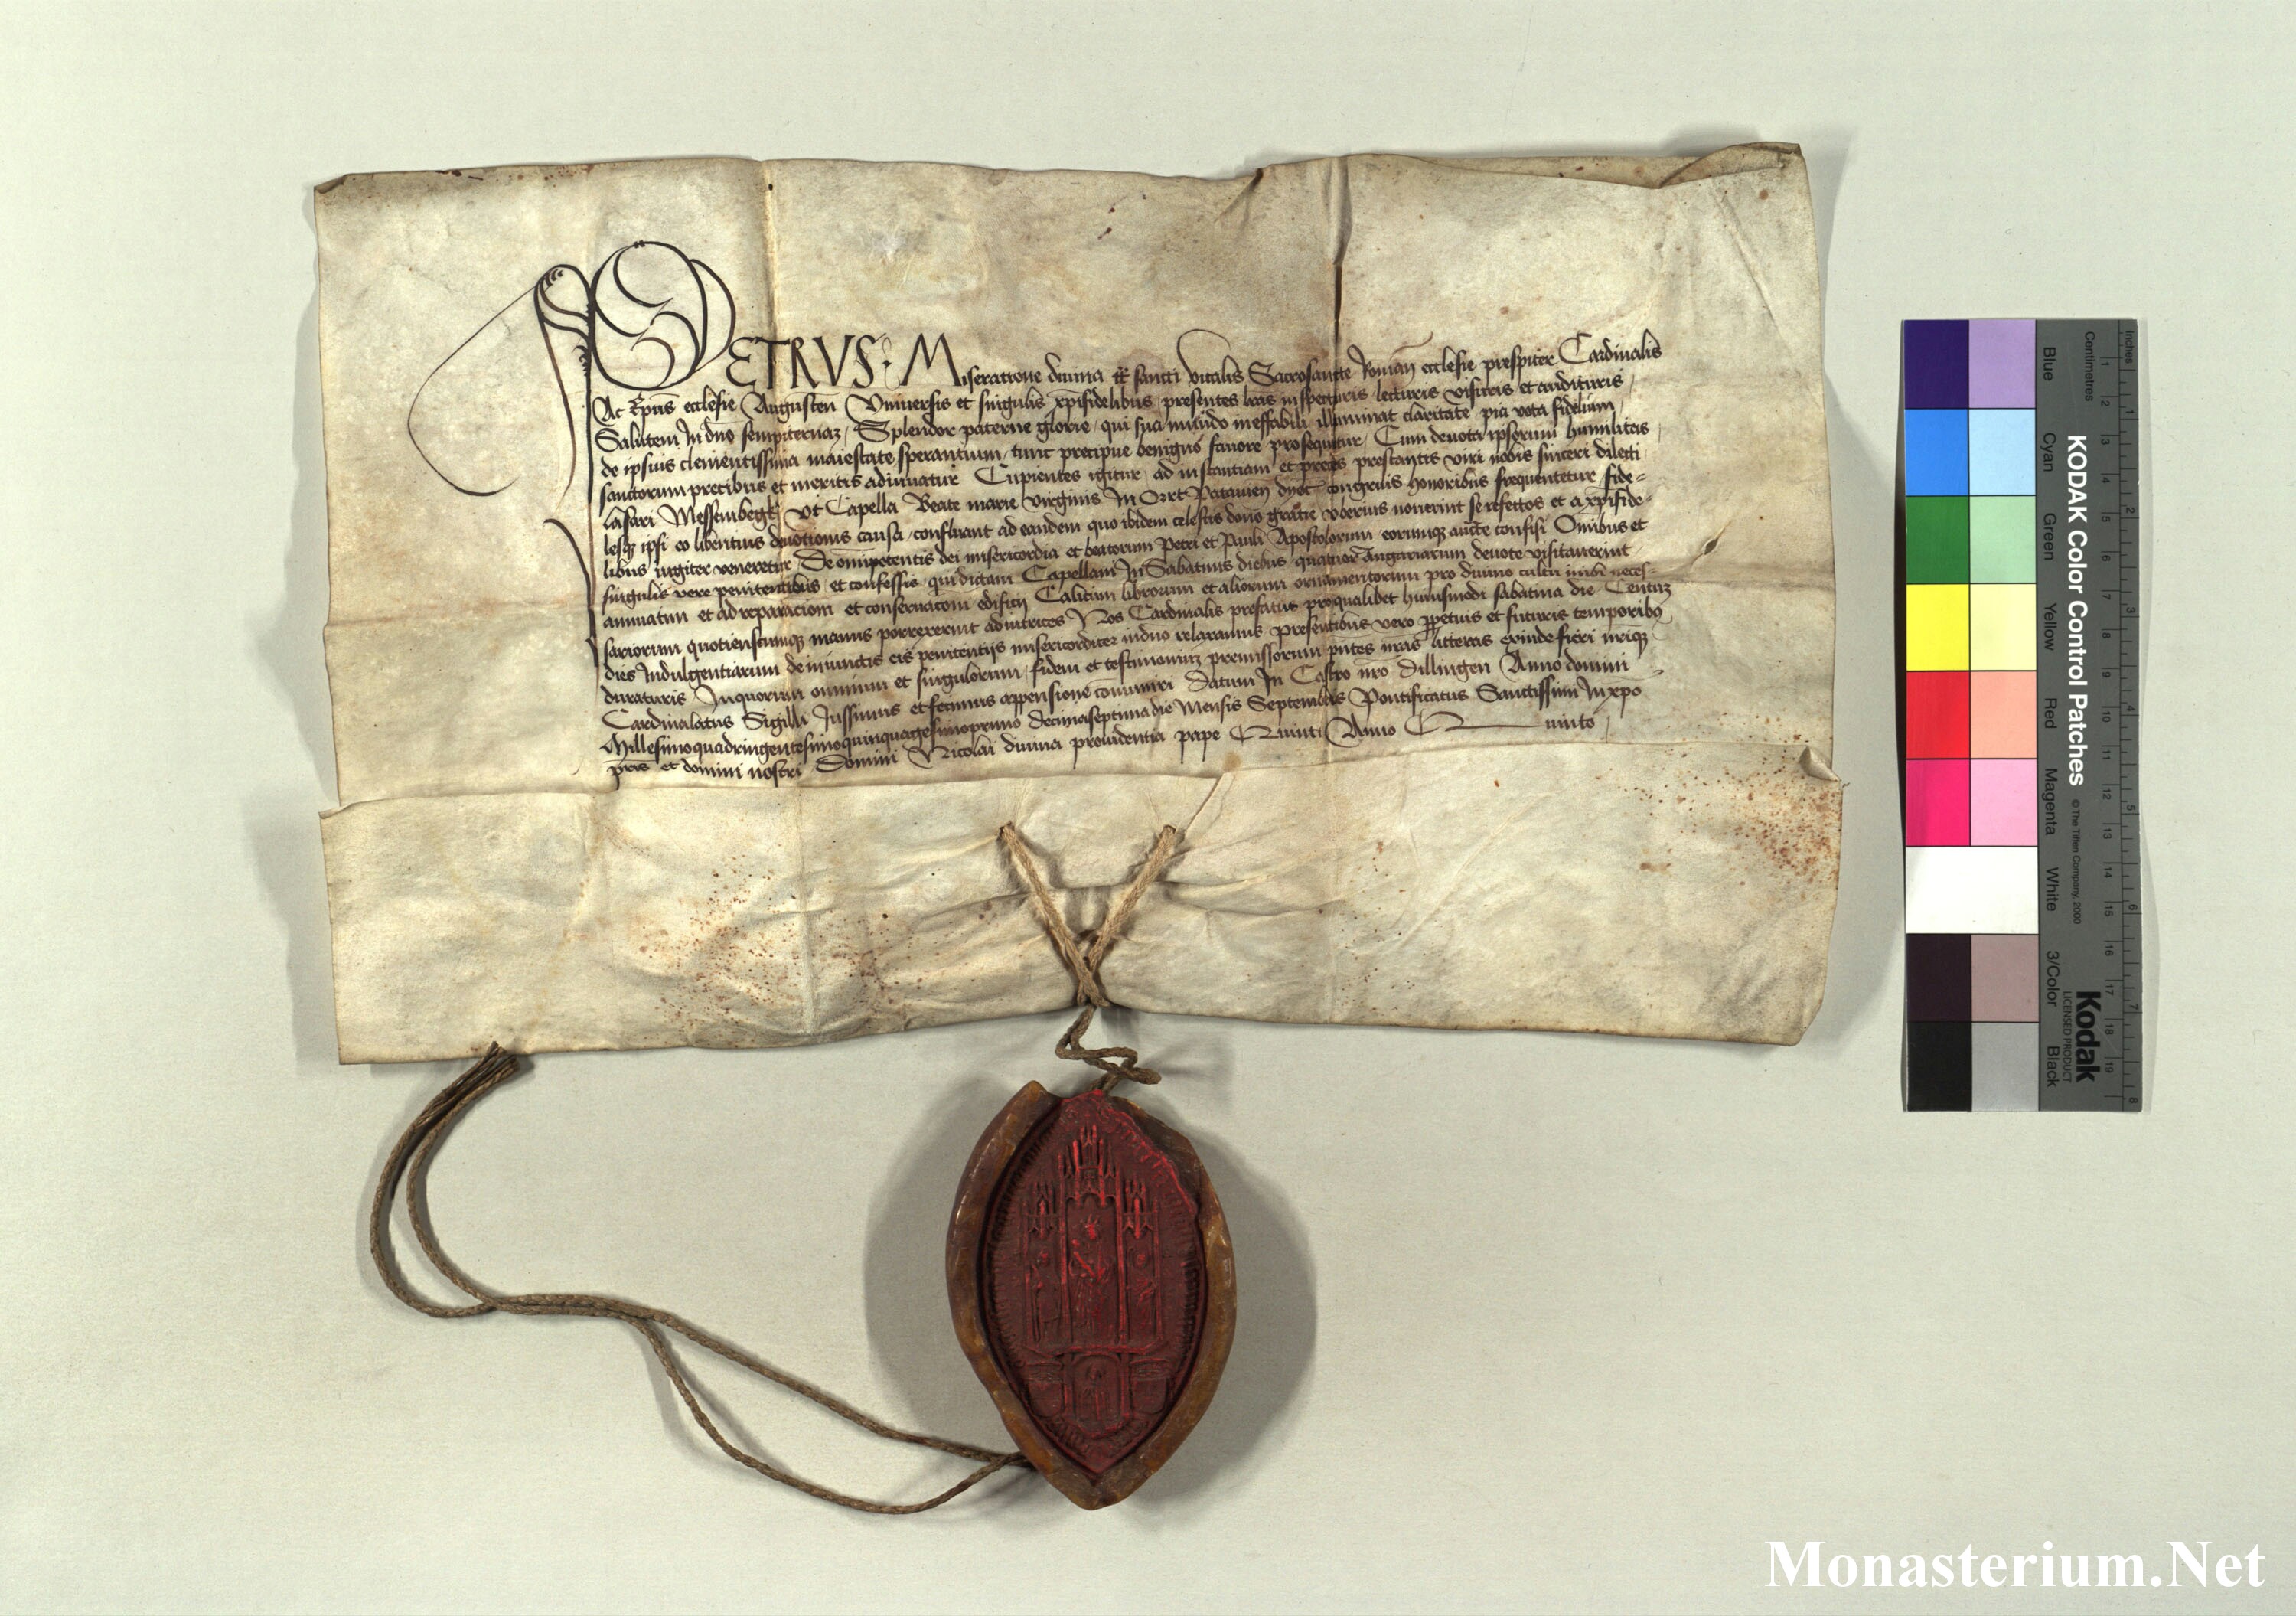 PETRVS: Miseratione diuina tt̄ sancti vitalis Sacrosancte Roman̄ ecclesie presp̄iter Cardinalis
Ac Ep̄us ecclesie Augusten̄ Vniuersis et singulis xp̄ifidelibus presentes l̄ras inspecturis lecturis visuris et audituris
Salutem In dn̄o sempiternaꝫ Splendor paterne glorie qui sua mūdo ineffabili illuminat claritate pia vota fidelium
de ipsius clementissima maiestate sperantium tunc precipue benigno fauore prosequitur Cum deuota ipsorum humilitas
sanctorum precibus et meritis adiuuatur Cupientes igitur ad instantiam et preces prestantis viri nobis sinceri dilecti
Messembegk vt Capella Beate marie virginis In Ortt Patauien̄ dyoc̄ congruis honoribus frequentetur fide-
lesqꝫ ipsi eo libentius deuotionis causa confluant ad eandem quo ibidem celestis dono gratie vberius nouerint se refectos et a xp̄ifide-
libus iugiter veneretur De omīpotentis dei misericordia et beatorum Petri et Pauli Apostolorum eorumqꝫ auct̄e confisi Omībus et
singulis vere penitentibus et confessis qui dictam Capellam In Sabatinis diebus quatuor Angariarum deuote visitauerint
annuatim et ad reparacionī et conseruacionī edificij Calicum librorum et aliorum ornamentorum pro diuino cultu inibi neces-
sariorum quotienscumqꝫ manus porrexerint adiutrices Nos Cardinalis prefatus pro qualibet huiusmodi sabatina die Centuꝫ
dies Indulgentiarum de iniunctis eis penitentijs misericorditer in dn̄o relaxamus Presentibus vero ꝑpetuis et futuris temporibꝫ
duraturis In quorum omnium et singulorum fidem et testimoniuꝫ premissorum pn̄tes nr̄as litteras exinde fieri nr̄iqꝫ
Cardinalatus Sigilli Iussimus et fecimus appensione cōmuniri Datum In Castro nr̄o Dillingen Anno domini
Millesimoquadringentesimoquinquagesimoprimo Decimaseptima die Mensis Septembris Pontificatus Sanctissimi In xp̄o
pr̄is et domini nostri Domini Nicolai diuina prouidentia pape Quinti Anno Quinto
KODAK Color Control Patches © The Tiffen Company, 2000
Kodak
LICENSED PRODUCT
Inches
Centimetres
1 2 3 4 5 6 7 8
1 2 3 4 5 6 7 8 9 10 11 12 13 14 15 16 17 18 19
Blue
Cyan
Green
Yellow
Red
Magenta
White
3/Color
Black
Monasterium.Net